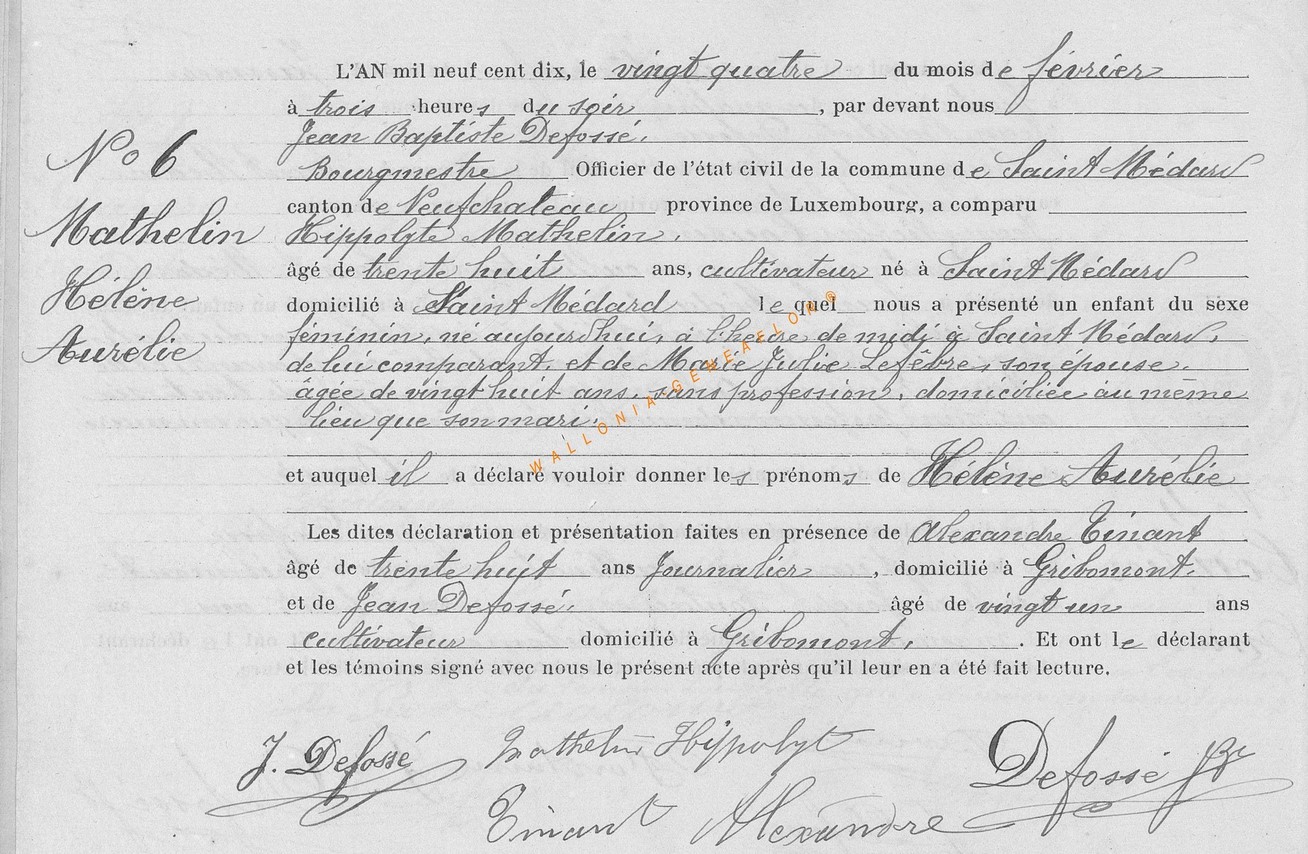 L'AN mil neuf cent dix, le vingt quatre du mois de février
à trois heures du soir, par devant nous
Jean Baptiste Defossé.
Bourgmestre Officier de l'état civil de la commune de Saint Médard
canton de Neufchateau province de Luxembourg, a comparu
Hippolyte Mathelin.
âgé de trente huit ans, cultivateur né à Saint Médard
domicilié à Saint Médard lequel nous a présenté un enfant du sexe
féminin, né aujourd'hui, à l'heure de midi à Saint Médard,
de lui comparant, et de Marie Julie Lefèbvre, son épouse.
âgée de vingt huit ans, sans profession, domiciliée au même
lieu que son mari.
et auquel il a déclaré vouloir donner les prénoms de Hélène Aurélie
Les dites déclaration et présentation faites en présence de Alexandre Tinant
âgé de trente huit ans Journalier, domicilié à Gribomont.
et de Jean Defossé. âgé de vingt un ans
cultivateur domicilié à Gribomont. Et ont le déclarant
et les témoins signé avec nous le présent acte après qu'il leur en a été fait lecture.
No 6
Mathelin
Hélène
Aurélie
WALLONIA-GENEAFLON®
J. Defossé Mathelin Hippolyt Defossé JBe
Tinant Alexandre